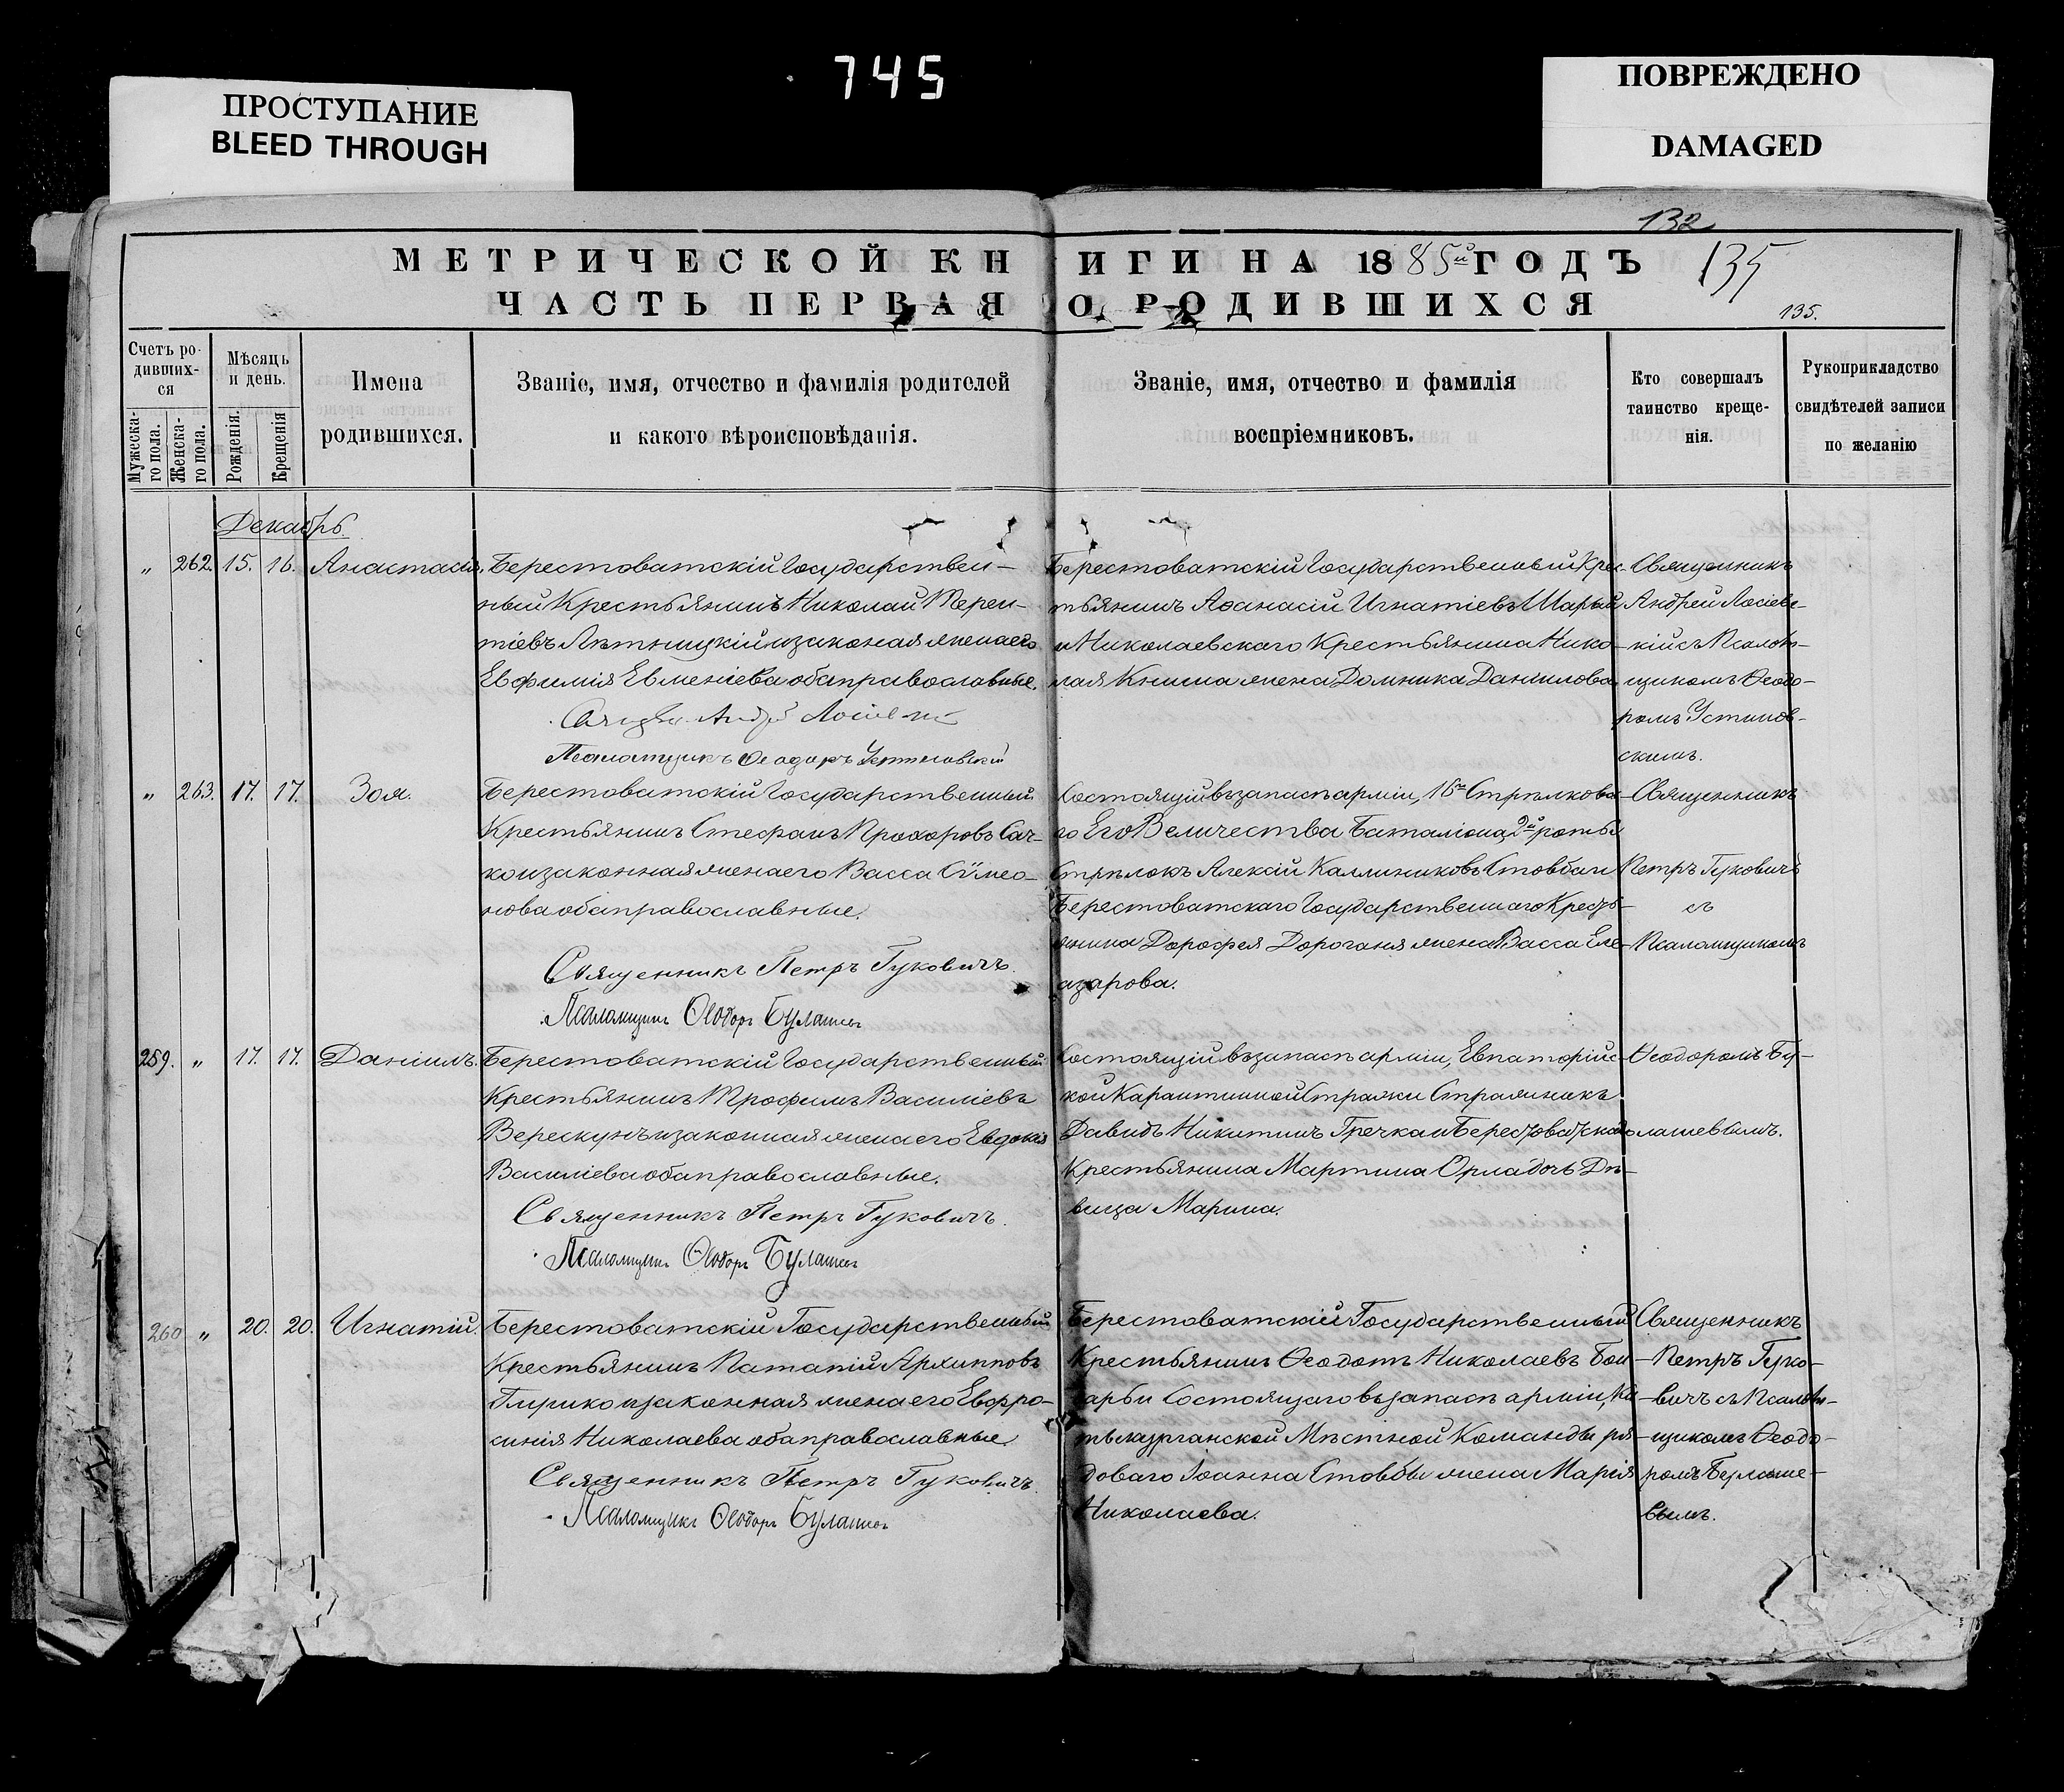 745
ПРОСТУПАНИЕ
BLEED THROUGH
ПОВРЕЖДЕНО
DAMAGED
132
МЕТРИЧЕСКОЙ КНИГИ НА 1885й ГОДЪ
135
ЧАСТЬ ПЕРВАЯ О РОДИВШИХСЯ
135.
Счетъ ро-
дивших-
ся
Мужеска-
го пола.
Женска-
го пола.
Мѣсяць
и день.
Рожденія.
Крещенія
Имена
родившихся.
Званіе, имя, отчество и фамилія родителей
и какого вѣроисповѣданія.
Званіе, имя, отчество и фамилія
воспріемниковъ.
Кто совершалъ
таинство креще-
нія.
Рукоприкладство
свидѣтелей записи
по желанію
Декабрь
" 262. 15. 16. Анастасія.
Берестоватскій Государствен-
ный Крестьянинъ Николай Терен-
тіевъ Лѣтницкій и законая жена его
Евфимія Евменіева оба православные.
Андрей
Псаломщикъ Ѳеодоръ Устиновскій
Берестоватскій Государственный Крес-
тьянинъ Аѳанасій Игнатіевъ Шарый
и Николаевскаго Крестьянина Нико-
лая Книша жена Домника Данилова
Священникъ
Андрей Лосіевс-
кій съ Псалом-
щикомъ Ѳеодо-
ромъ Устинов-
скимъ.
" 263. 17. 17. Зоя.
Берестоватскій Государственный
Крестьянинъ Стефанъ Прохоровъ Сач-
ко и законная жена его Васса Сѵмео-
нова оба православные.
Священникъ Петръ Гуковичъ.
Псаломщикъ Ѳеодоръ Булашев
Состоящій въ запасѣ арміи, 16го Стрѣлкова-
го Его Величества Баталіона, 2й роты
Стрѣлокъ Алексій Каллиниковъ Стовба и
Берестоватскаго Государственнаго Кресть-
янина Дорофея Дороганя жена Васса Еле-
азарова.
Священникъ
Петръ Гуковичъ
съ
Псаломщикомъ
259. " 17. 17. Даніилъ.
Берестоватскій Государственный
Крестьянинъ Трофимъ Василіевъ
Верескунъ и законная жена его Евдокія
Василіева оба православные.
Священникъ Петръ Гуковичъ.
Псаломщикъ Ѳеодоръ Булашев
Состоящій въ запасѣ арміи, Евпаторійс-
кой Карантинной Стражи Стражникъ
Давидъ Никитинъ Гречка и Берестоватскаго
Крестьянина Мартина Орла дочь Дѣ-
вица Марина.
Ѳеодоромъ Бу-
лашевымъ.
260 " 20. 20. Игнатій.
Берестоватскій Государственный
Крестьянинъ Патапій Архипповъ
и законная жена его Евфро-
синія Николаева оба православные.
Священникъ Петръ Гуковичъ.
Псаломщикъ Ѳеодоръ Булашев
Берестоватскій Государственный
Крестьянинъ Ѳеодотъ Николаевъ
и Состоящаго въ запасѣ арміи,
Мѣстной Команды ря-
доваго Іоанна Стовбы жена Марія
Николаева.
Священникъ
Петръ Гуко-
вичъ съ Псалом-
щикомъ Ѳеодо-
ромъ Булаше-
вымъ.